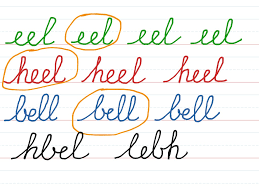 eel eel eel eel
heel heel heel
bell bell bell
hbel lebh